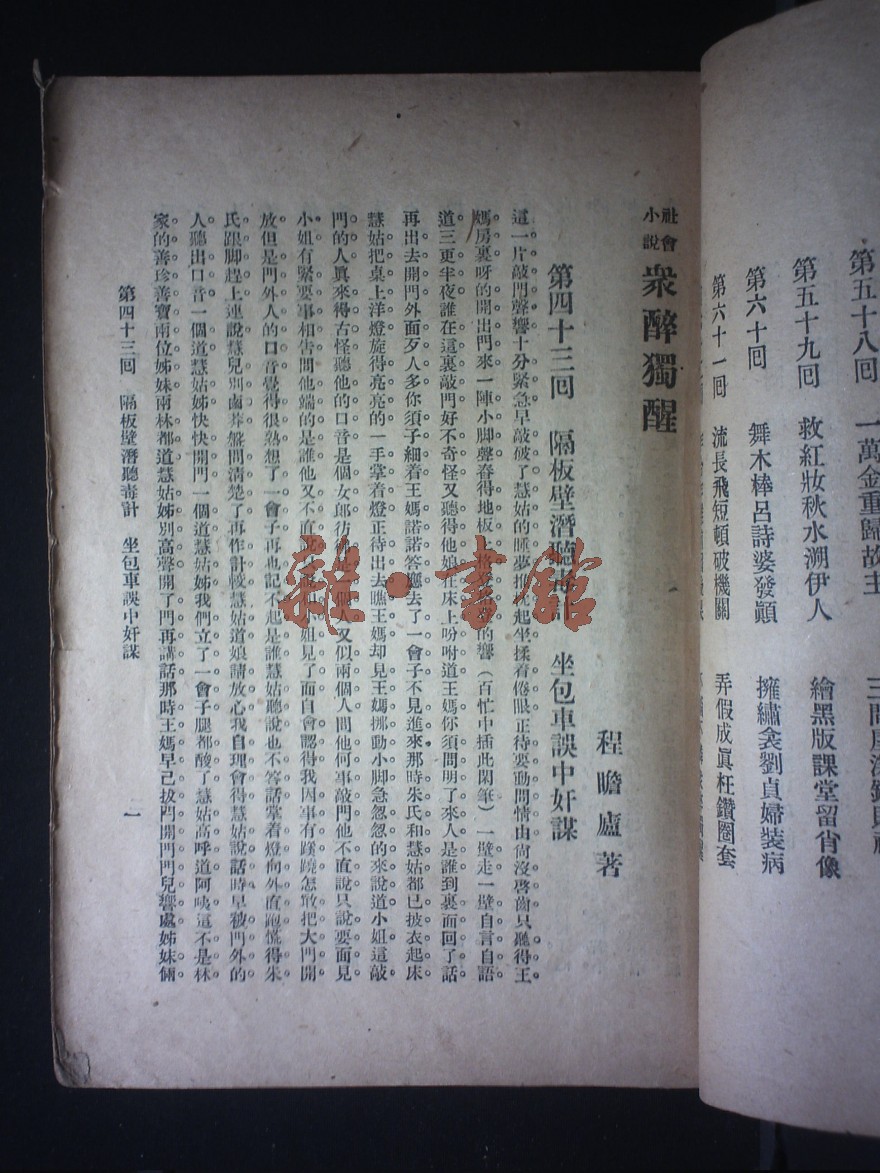 第五十八回 一萬金重歸故主
第五十九回 救紅妝秋水溯伊人 繪黑版課堂留肖像
第六十回 舞木棒呂詩婆發顚 擁繡衾劉貞婦裝病
第六十一回 流長飛短頓破機關 弄假成眞枉鑽圈套
社會小說 衆醉獨醒
程瞻廬著
第四十三回 隔板壁潛聽毒計 坐包車誤中奸謀
這一片敲門聲響十分緊急早敲破了慧姑的睡夢起坐揉着倦眼正待要動問情由尙沒啓齒只聽得王
媽房裏呀的開出門來一陣小脚聲舂得地板上格的響(百忙中插此閑筆)一壁走一壁自言自語
道三更半夜誰在這裏敲門好不奇怪又聽得他娘在床上吩咐道王媽你須問明了來人是誰到裏面回了話
再出去開門外面歹人多你須子細着王媽諾諾答應去了一會子不見進來那時朱氏和慧姑都已披衣起床
慧姑把桌上洋燈旋得亮亮的一手掌着燈正待出去瞧王媽却見王媽挪動小脚急忽忽的來說道小姐這敲
門的人眞來得古怪聽他的口音是個女郎彷彿是一個人又似兩個人問他何事敲門他不直說只說要面見
小姐有緊要事相告問他端的是誰他又不直小姐見了面自會認得我因事有蹊蹺怎敢把大門開
放但是門外人的口音覺得很熟想了一會子再也記不起是誰慧姑聽說也不答話掌着燈向外直跑慌得朱
氏跟脚趕上連說慧兒別鹵莽盤問淸楚了再作計較慧姑道娘請放心我自理會得慧姑說話時早被門外的
人聽出口音一個道慧姑姊快快開門一個道慧姑姊我們立了一會子腿都酸了慧姑高呼道阿呦這不是林
家的善珍善寶兩位姊妹兩林都道慧姑姊別高聲開了門再講話那時王媽早己拔閂開門門兒響處姊妹倆
第四十三回 隔板壁潛聽毒計 坐包車誤中奸謀
一
雜·書館